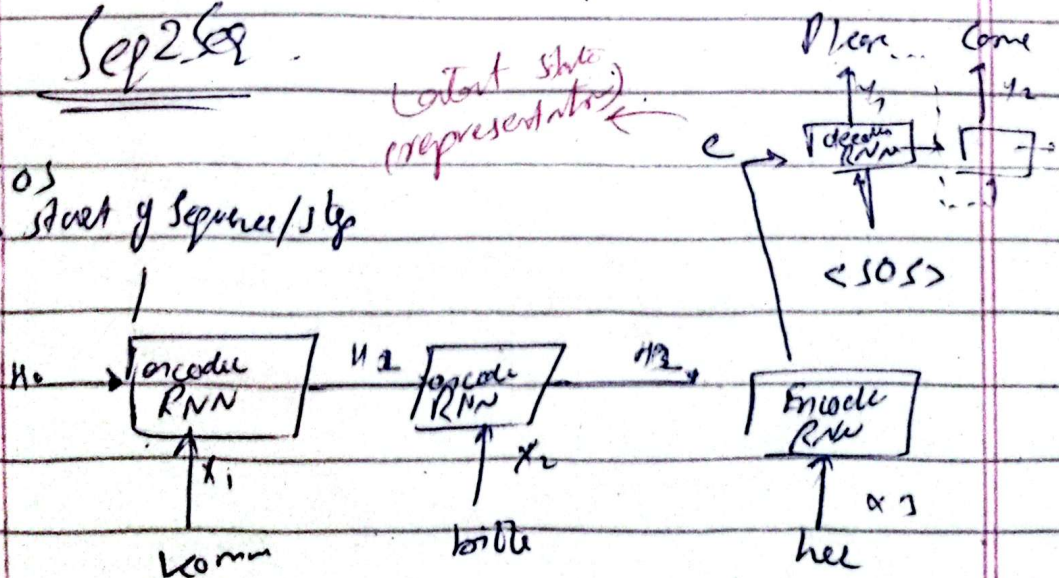 Seq2Seq
Please Come
Latent state
(representation)
y1 y2
decoder
RNN
C
OS
start of Sequence/step
<SOS>
H0
encoder
RNN
H1
encoder
RNN
H2
Encoder
RNN
x1
x2
x3
komm
bitte
her